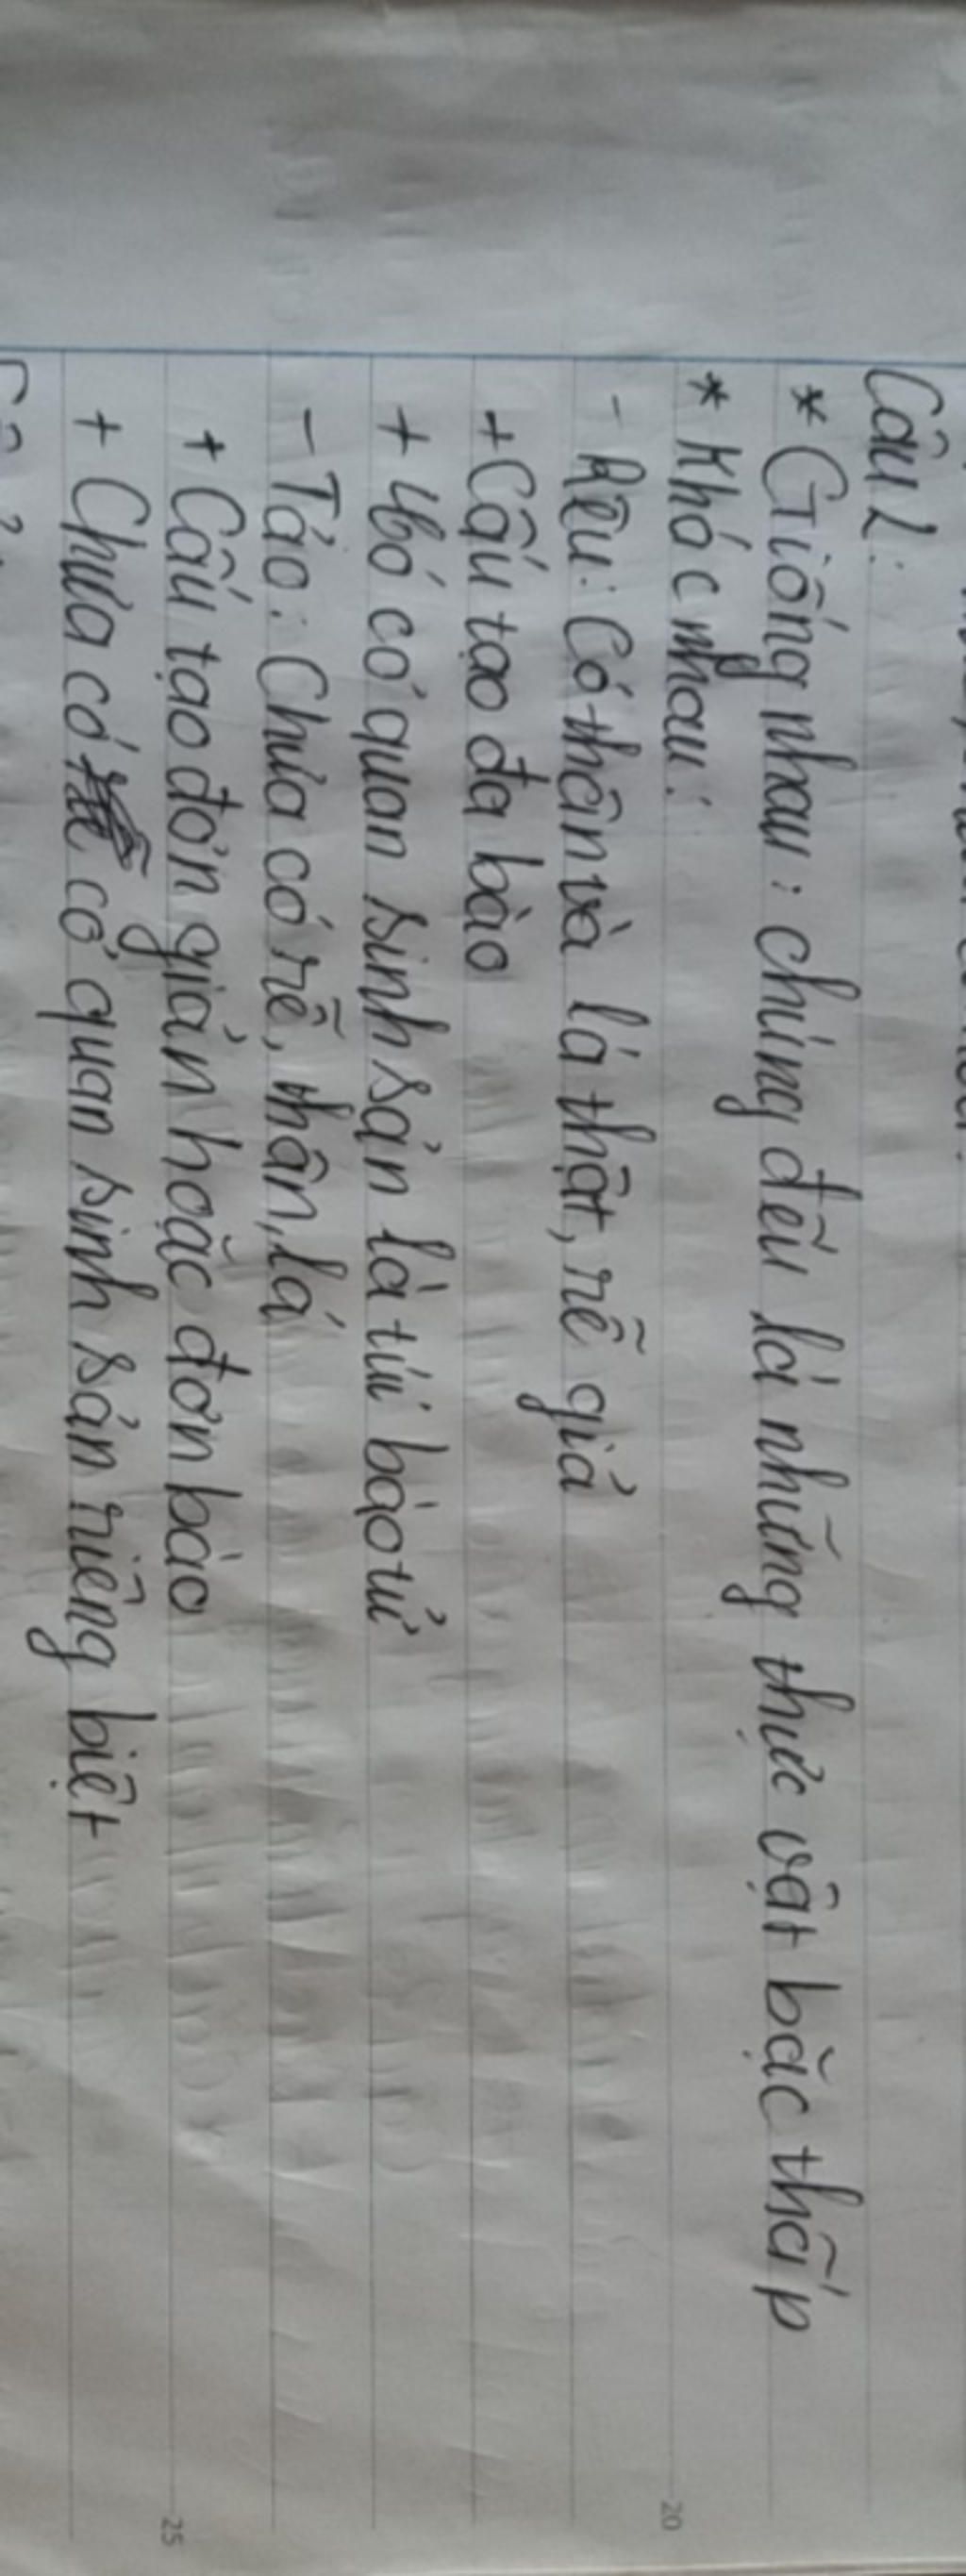 Câu 2:
* Giống nhau: chúng đều là những thực vật bậc thấp
* Khác nhau:
- Rêu: Có thân và lá thật, rễ giả
+ Cấu tạo đa bào
+ Đó cơ quan sinh sản là túi bào tử
- Tảo: Chưa có rễ, thân, lá
+ Cấu tạo đơn giản hoặc đơn bào
+ Chưa có cơ quan sinh sản riêng biệt
20
25